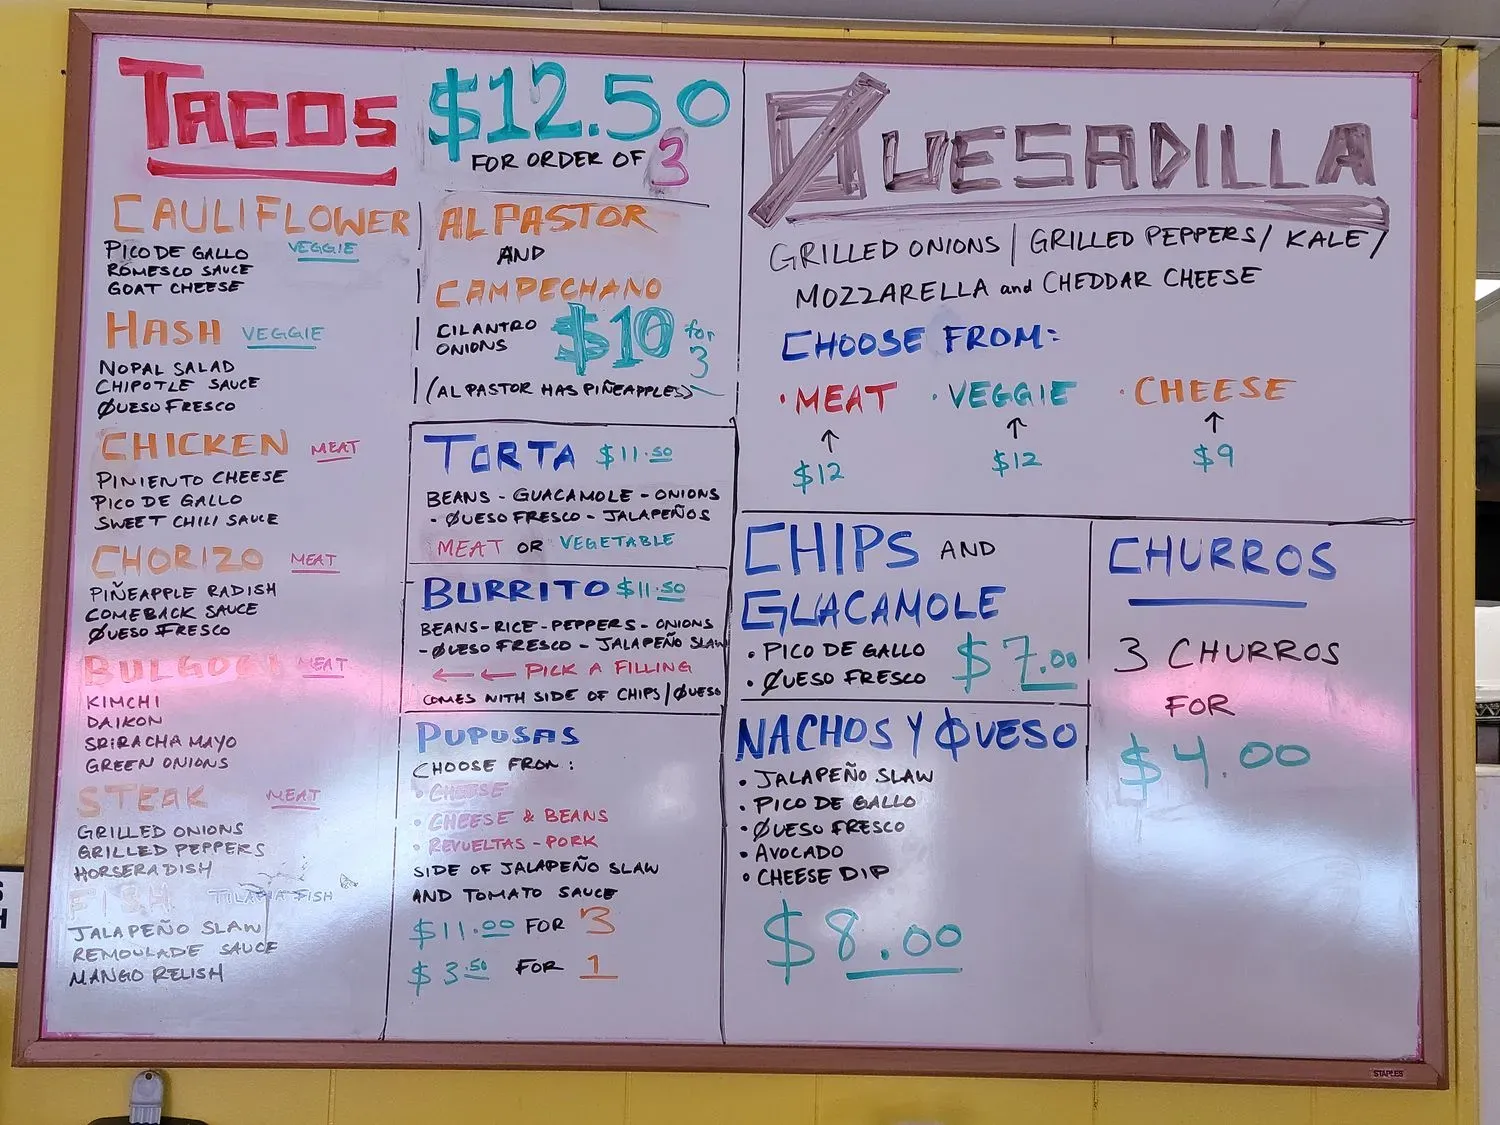 TACOS
$12.50
FOR ORDER OF 3
CAULIFLOWER
VEGGIE
PICO DE GALLO
ROMESCO SAUCE
GOAT CHEESE
HASH VEGGIE
NOPAL SALAD
CHIPOTLE SAUCE
QUESO FRESCO
CHICKEN MEAT
PIMIENTO CHEESE
PICO DE GALLO
SWEET CHILI SAUCE
CHORIZO MEAT
PIÑEAPPLE RADISH
COMEBACK SAUCE
QUESO FRESCO
BULGOGI MEAT
KIMCHI
DAIKON
SRIRACHA MAYO
GREEN ONIONS
STEAK MEAT
GRILLED ONIONS
GRILLED PEPPERS
HORSERADISH
FISH TILAPIA FISH
JALAPEÑO SLAW
REMOULADE SAUCE
MANGO RELISH
AL PASTOR
AND
CAMPECHANO
CILANTRO
ONIONS
$10 for 3
(AL PASTOR HAS PIÑEAPPLES)
TORTA $11.50
BEANS - GUACAMOLE - ONIONS
- QUESO FRESCO - JALAPEÑOS
MEAT OR VEGETABLE
BURRITO $11.50
BEANS-RICE-PEPPERS-ONIONS
-QUESO FRESCO - JALAPEÑO SLAW
← ← PICK A FILLING
COMES WITH SIDE OF CHIPS/QUESO
PUPUSAS
CHOOSE FROM:
• CHEESE
• CHEESE & BEANS
• REVUELTAS - PORK
SIDE OF JALAPEÑO SLAW
AND TOMATO SAUCE
$11.00 FOR 3
$3.50 FOR 1
QUESADILLA
GRILLED ONIONS | GRILLED PEPPERS / KALE /
MOZZARELLA and CHEDDAR CHEESE
CHOOSE FROM:
• MEAT • VEGGIE • CHEESE
↑ ↑ ↑
$12 $12 $9
CHIPS AND
GUACAMOLE
• PICO DE GALLO
• QUESO FRESCO
$7.00
NACHOS Y QUESO
• JALAPEÑO SLAW
• PICO DE GALLO
• QUESO FRESCO
• AVOCADO
• CHEESE DIP
$8.00
CHURROS
3 CHURROS
FOR
$4.00
STAPLES